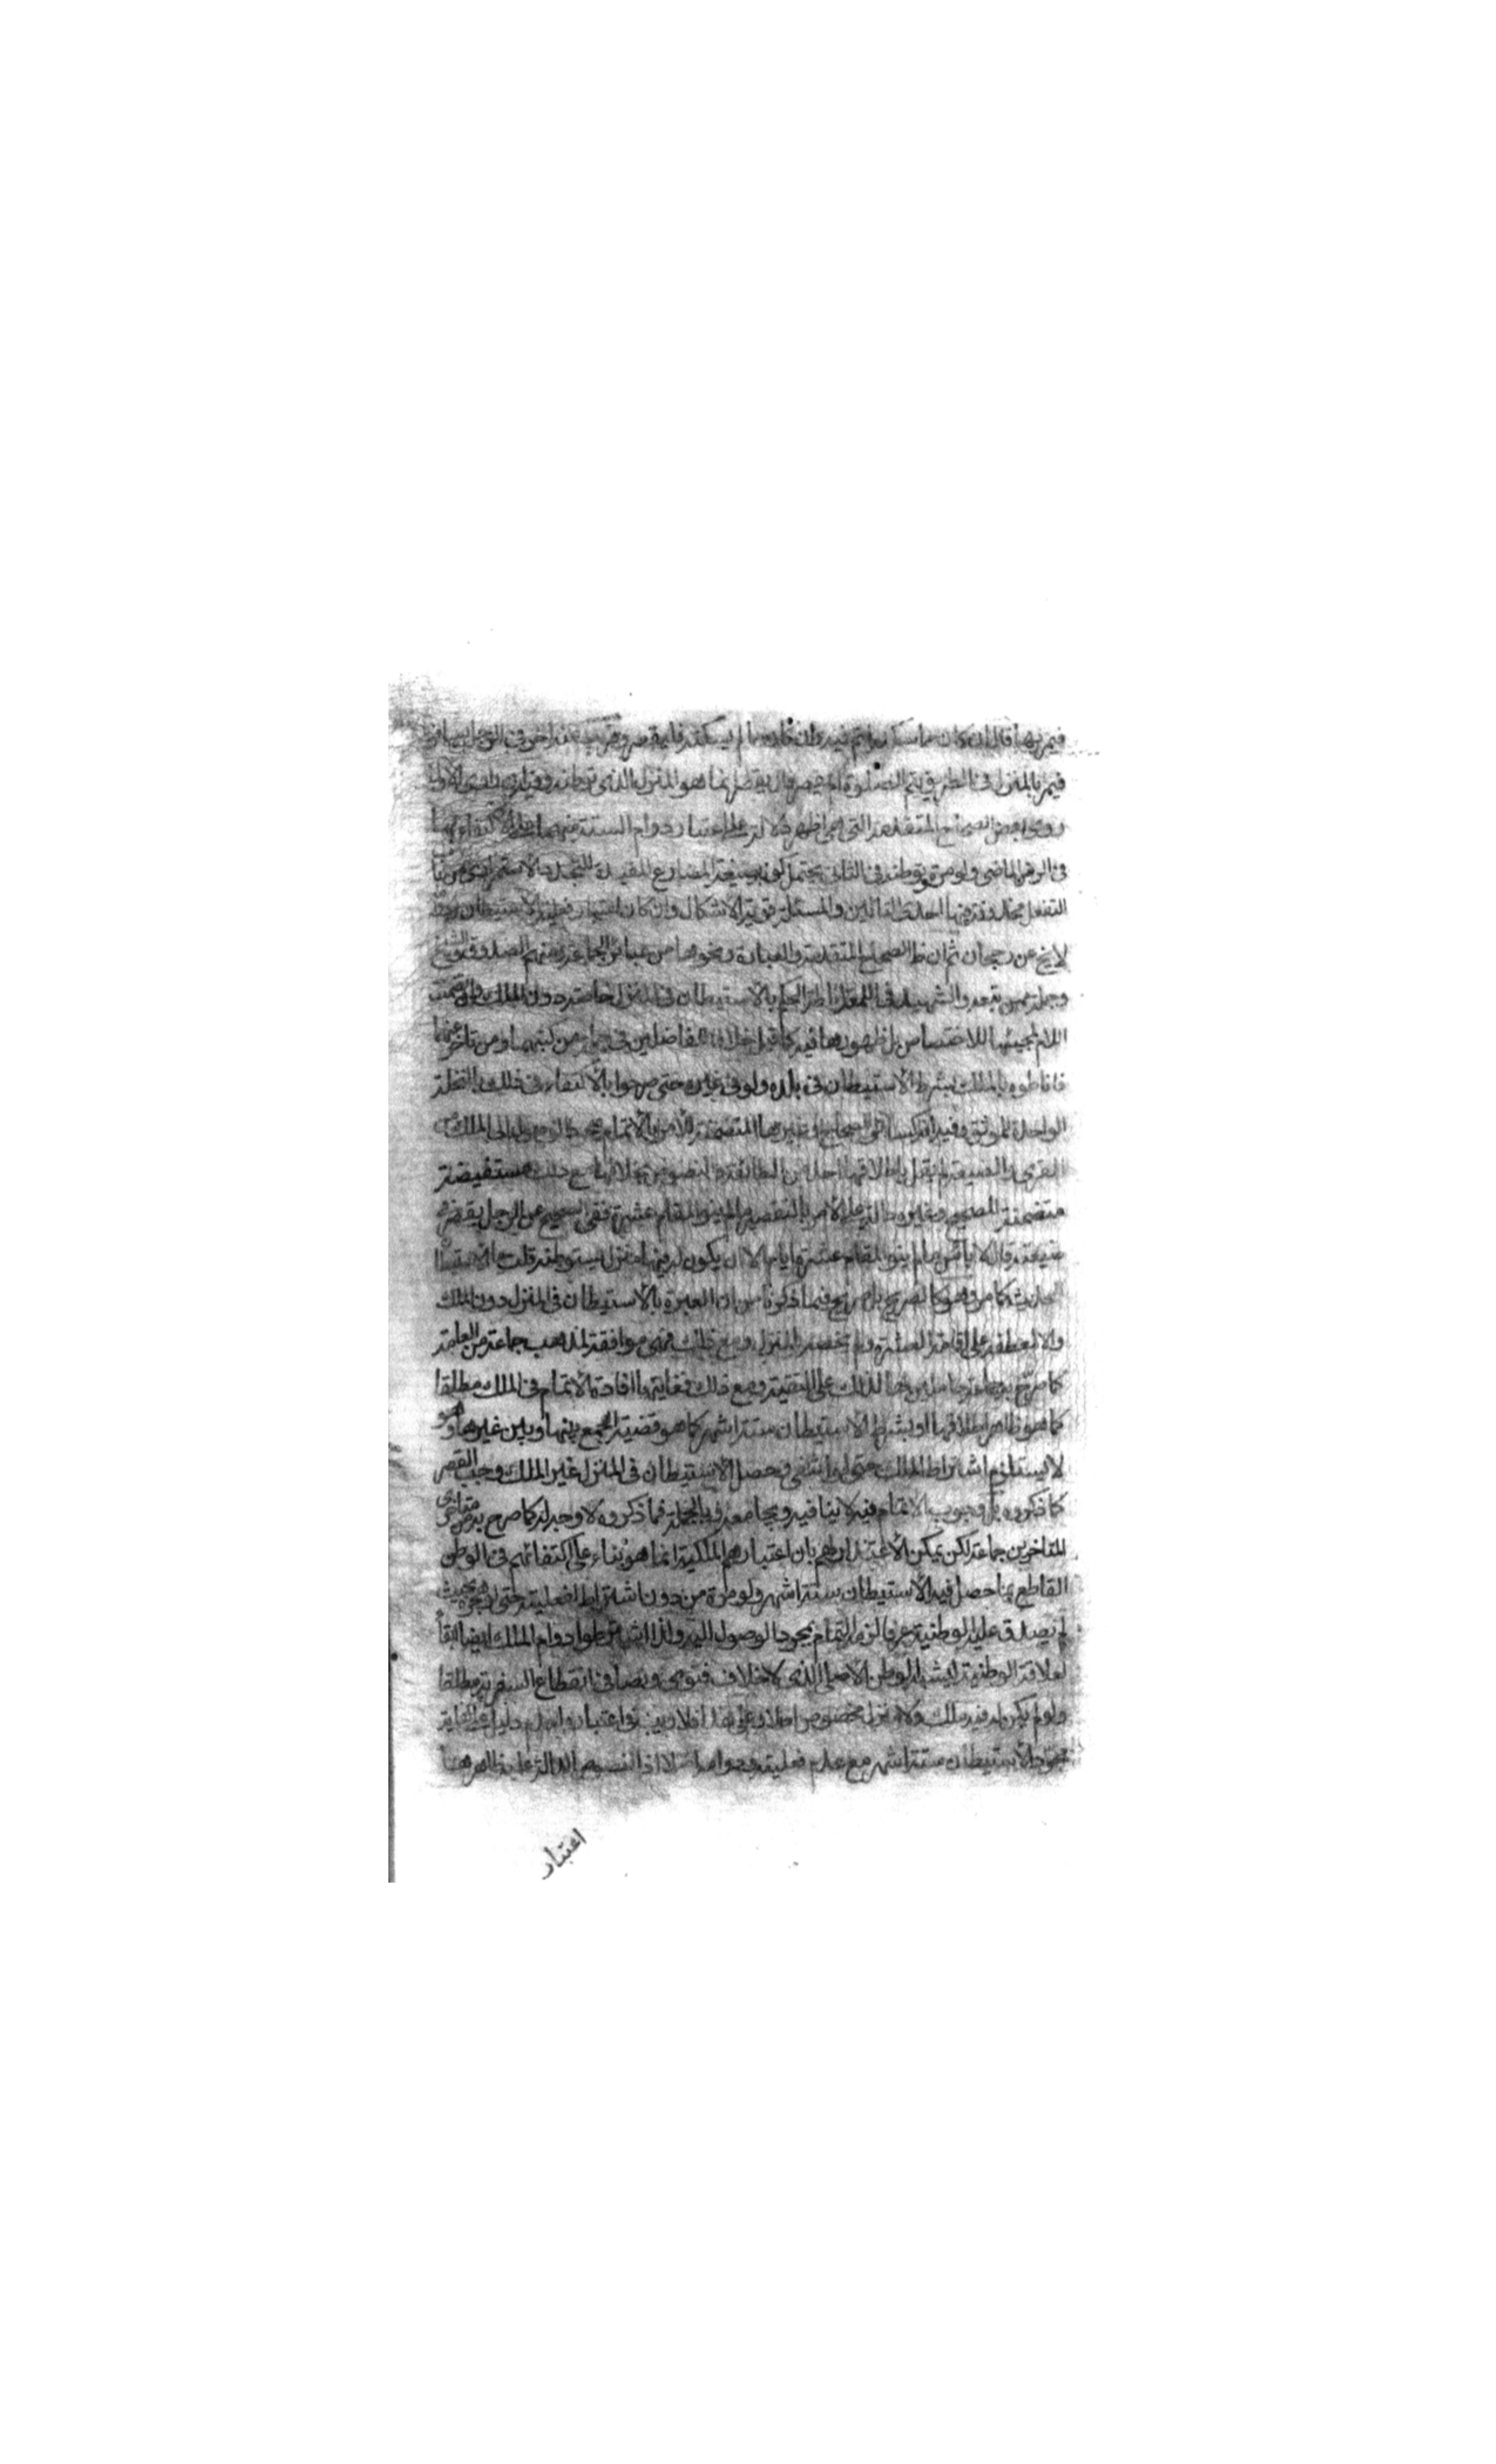 فيمر بها قال ان كان مما سكنه اتم فيه وان كان مما لم يسكنه فليقصر وقريب منه اخر في الرجل يسافر
فيمر بالمنزل في الطريق يتم الصلوة ام يقصر قال يقصر انما هو المنزل الذي توطنه
روى بعض الصحاح المتقدمة التي هي اظهر دلالة على اعتبار دوام الستة
في الزمن الماضي ولو مرة توطنه في الثاني يحتمل كونه بصيغة المضارع المفيدة للتجدد الاستمراري من باب
التفعل محذوفة منها احدى التائين والمسئلة قوية الاشكال وان كان اعتبار فعلية الاستيطان
لا يخ عن رجحان ثم ان ظ الصحاح المتقدمة والعبارة ونحوها من عبائر الجماعة ومنهم الصدوق والشيخ
وجملة ممن تبعه والشهيد في اللمعة اناطة الحكم بالاستيطان في المنزل خاصة دون الملك
اللام لمجيئها للاختصاص بل ظهورها فيه كما قيل خلافا للفاضلين في جملة من كتبهما ومن تاخر عنهما
فاناطوه بالملك بشرط الاستيطان في بلده ولو في غيره حتى صرحوا بالاكتفاء في ذلك بالنخلة
الواحدة للموثق وفيه انه كسائر الصحاح وغيرها المتضمنة للامر بالاتمام بمجرد الوصول الى الملك من
القرى والضيعة لم يقل باطلاقها احد من الطائفة والنصوص بخلافها مع ذلك مستفيضة
متضمنة للصحيح وغيره دالة على الامر بالتقصير ما لم ينو المقام عشرة ففي الصحيح عن الرجل يقصر في
ضيعته قال لا باس ما لم ينو المقام عشرة ايام الا ان يكون له فيها منزل يستوطنه قلت ما الاستيطان
الحديث كما مر وهو كالصريح بل صريح فيما ذكرنا من ان العبرة بالاستيطان في المنزل دون الملك
والا لعطفه على اقامة العشرة ولم تخصه المنزل ومع ذلك فهي موافقة لمذهب جماعة من العامة
كما صرح به جماعة حاملين لها لذلك على التقية ومع ذلك فغايتها افادة الاتمام في الملك مطلقا
كما هو ظاهر اطلاقها او بشرط الاستيطان ستة اشهر كما هو قضية الجمع بينها وبين غيرها وهو
لا يستلزم اشتراط الملك حتى لو انتفى وحصل الاستيطان في المنزل غير الملك وجب القصر
كما ذكروه بل وجوب الاتمام فيه لا ينافيه ويجامعه وبالجملة فما ذكروه لا وجه له كما صرح به من متاخري
المتاخرين جماعة لكن يمكن الاعتذار لهم بان اعتبارهم الملكية انما هو بناء على اكتفائهم في الوطن
القاطع بما حصل فيه الاستيطان ستة اشهر ولو مرة من دون اشتراط لفعليته حتى لو هجره بحيث
لم يصدق عليه الوطنية عرفا لزم التمام بمجرد الوصول اليه ولذا اشترطوا دوام الملك ايضا ابقاء
لعلاقة الوطنية ليشبه الوطن الاصلي الذي لا خلاف فتوى ونصا في انقطاع السفر به مطلقا
ولو لم يكن له فيه ملك ولا منزل مخصوص اصلا وعلى هذا فلا ريب في اعتبار
مجرد الاستيطان ستة اشهر مع عدم فعليته ودوامه اذ النصوص الدالة عليه ظاهرها
اعتبار